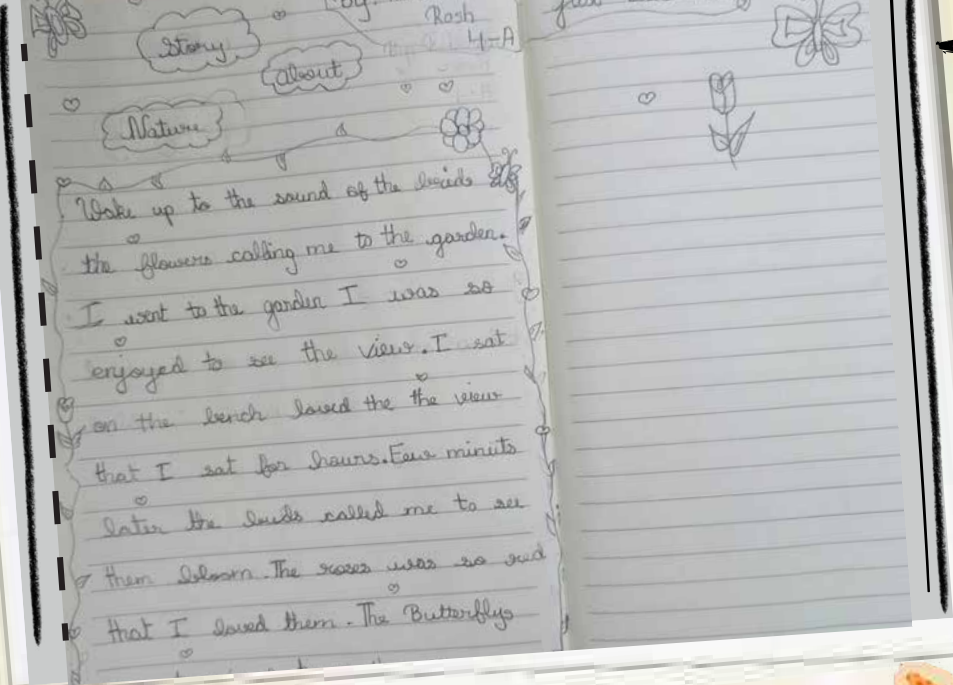 by
Rosh
4-A
Story
about
Nature
Wake up to the sound of the birds
the flowers calling me to the garden.
I went to the garden I was so
enjoyed to see the view. I sat
on the bench loved the the view
that I sat for hours. Few minuts
later the buds called me to see
them bloom. The roses was so red
that I loved them. The Butterflys